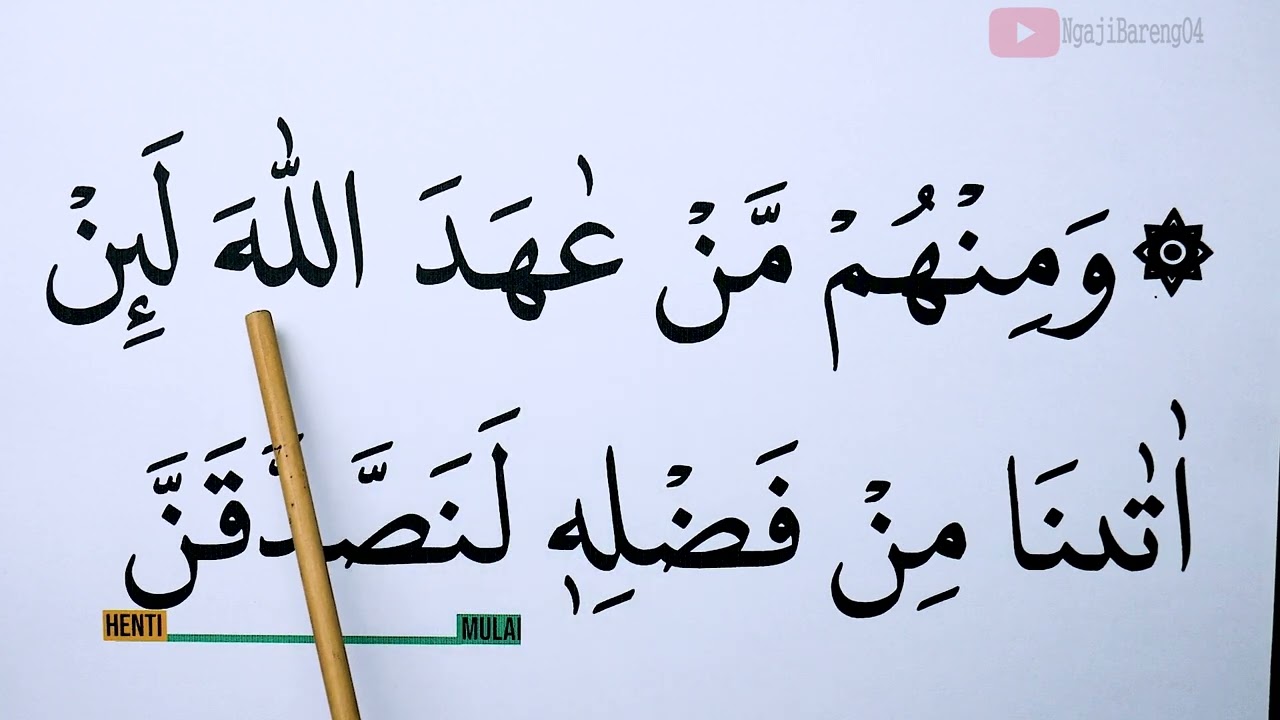 NgajiBareng04
۞ وَمِنْهُمْ مَّنْ عٰهَدَ اللّٰهَ لَىِٕنْ
اٰتٰىنَا مِنْ فَضْلِهٖ لَنَصَّدَّقَنَّ
HENTI MULAI